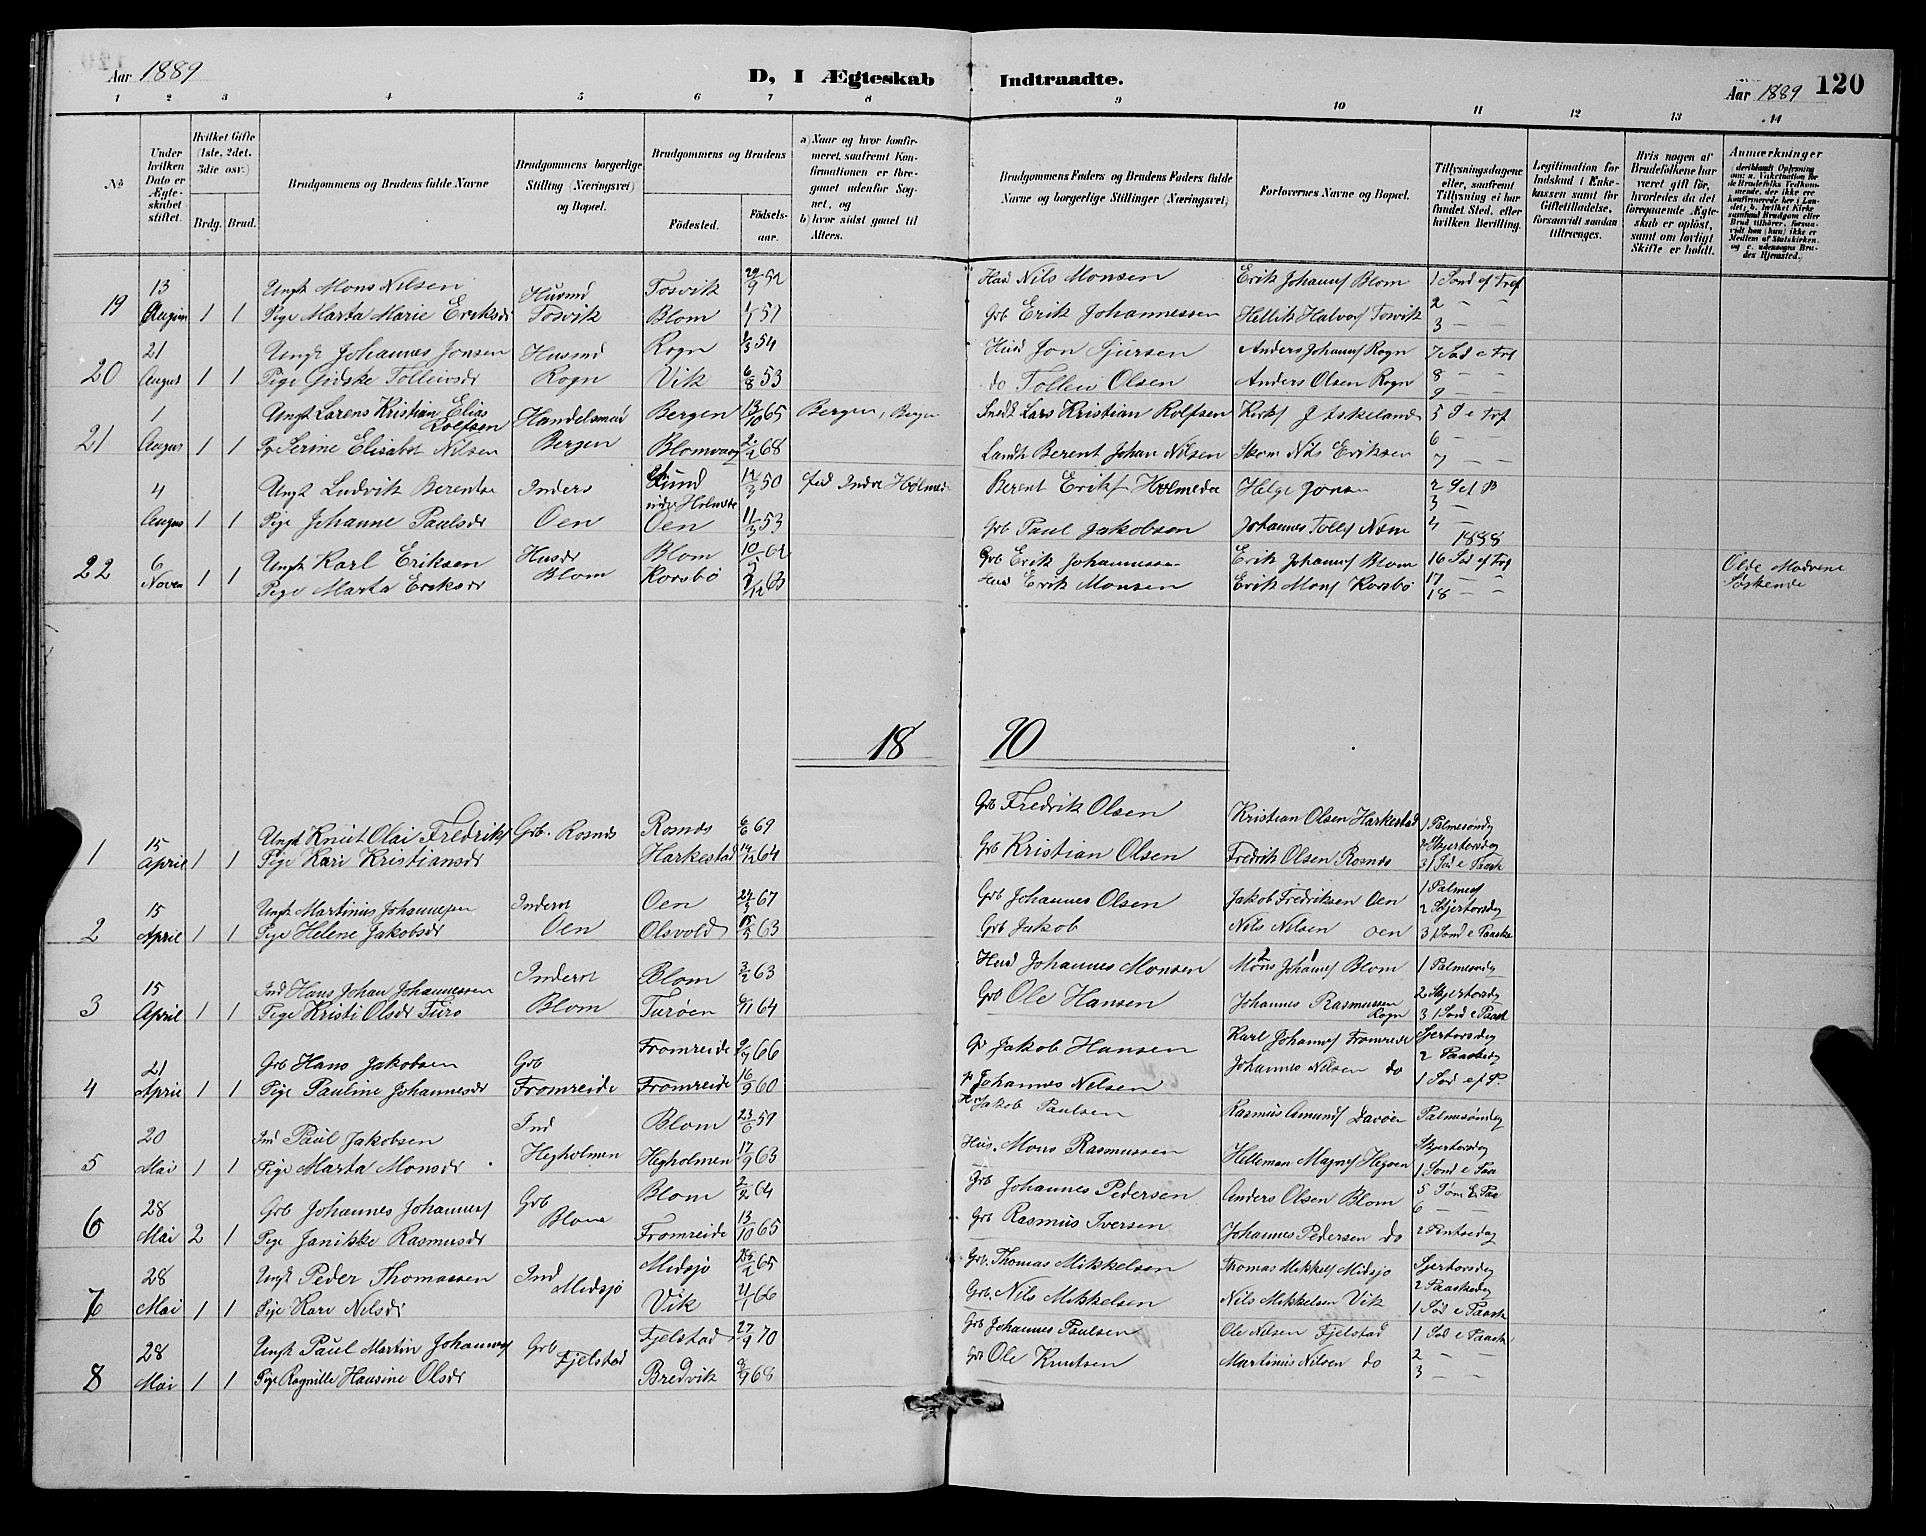 Aar 1889
D, I Ægteskab Indtraadte.
Aar 1889 120
1 2 3 4 5 6 7 8 9 10 11 12 13 14
No
Under hvilken Dato er Ægteskabet stiftet.
Hvilket Gifte (1ste, 2det, 3die osv.)
Brdg. Brud.
Brudgommens og Brudens fulde Navne
Brudgommens borgerlige Stilling (Næringsvei) og Bopæl.
Brudgommens og Brudens
Fødested.
Fødselsaar.
a) Naar og hvor konfirmeret, saafremt Konfirmationen er foregaaet udenfor Sognet, og
b) hvor sidst gaaet til Alters.
Brudgommens Faders og Brudens Faders fulde Navne og borgerlige Stillinger (Næringsvei)
Forlovernes Navne og Bopæl.
Tillysningsdagene eller, saafremt Tillysning ei har fundet Sted, efter hvilken Bevilling.
Legitimation for Indskud i Enkekassen samt for Giftetilladelse, forsaavidt saadan tiltrænges.
Hvis nogen af Brudefolkene har været gift før, hvorledes da det foregaaende Ægteskab er opløst, samt om lovligt Skifte er holdt.
Anmærkninger
19 13 August 1 1 Ungk Mons Nilsen Husmd Tosvik Tosvik 29/9 52 Husd Nils Monsen Erik Johannes Blom 1 Sond ef Tref
Pige Marta Marie Eriksdr Blom 1/1 51 Grb Erik Johannessen Hellik Halvors Tosvik 2 — —
3 — —
20 21 August 1 1 Ungk Johannes Jonsen Husmd Rogn Rogn 1/3 54 Husd Jon Sjursen Anders Johannes Rogn 7 Sød e Tref
Pige Gidske Tolleivsdr Vik 6/8 53 do Tollev Olsen Anders Olsen Rogn 8 — —
9 — —
21 1 August 1 1 Ungk Larens Kristian Elias Rolfsen Handelsmnd Bergen Bergen 13/10 65 Bergen, Bergen Lars Kristian Rolfsen Kirks J Askeland 5 S e Tref
Serine Elisabet Nilsen Blomvaag 2/2 68 Berent Johan Nilsen Skom Nils Eriksen 6 — —
7 — —
4 August 1 1 Ungk Ludvik Berentsen Inders Oen 50 Indre Holmed Berent Eriks Holmedal Helge Jonsen 2 S ef P
Pige Johanne Paulsdr Oen 11/3 53 Grb Paul Jakobsen Johannes Tolles Næsse 3 —
4 —
1888
22 6 Novem 1 1 Ungk Karl Eriksen Husdr Blom Blom Grb Erik Johannessen Erik Johannes Blom 16 Sød ef Tref
Pige Marta Eriksdr Korsbø 63 Husd Erik Monsen Erik Mons Korsbø 17 — —
18 — —
Olde Modrene Søskende
18 90
1 15 April 1 1 Ungk Knut Olai Fredriks Grb. Rosnes Rosnes 6/6 69 Grb Fredrik Olsen Kristian Olsen Harkestad 1 Palmesøndag
Pige Kari Kristiansdr Harkestad 14/12 64 Grb Kristian Olsen Fredrik Olsen Rosnes 2 Skjertorsdag
3 1 Sød e Paask
2 15 April 1 1 Ungk Martinus Johannessen Inderst Oen Oen 24/3 67 Grb Johannes Olsen Jakob Fredriksen Oen 1 Palmes
Pige Helene Jakobsdr Olsvold 15/5 63 Grb Jakob Nils Nilsen Oen 2 Skjertorsdag
3 1 Sønd e Paaske
3 15 April 1 1 Ind Hans Johan Johannessen Inderst Blom Blom 3/2 63 Husd Johannes Monsen Mons Johannes Blom 1 Palmesødag
Pige Kristi Olsdr Turø Turøen 6/1 64 Grb Ole Hansen Johannes Rasmussen Rogn 2 Skjertorsdag
3 1 Sond e Paask
4 21 April 1 1 Grb Hans Jakobsen Grb Fromreide Fromreide 9/7 66 Gr Jakob Hansen Karl Johannes Fromreide Sjertorsdag
Pige Pauline Johannesdr Fromreide 16/9 60 Johannes Nilsen Johannes Nilsen do 2 Paaskedag
1 Sød ef P.
5 20 Mai 1 1 Ind Paul Jakobsen Ind Hegholmen Blom 23/6 59 Jakob Paulsen Rasmus Amunds Davøen Palmesøndag
Pige Marta Monsdr Hegholmen 17/9 63 Hus. Mons Rasmussen Helleman Magnes Hegøen Skjertorsdag
1 Sond e Paa
6 28 Mai 2 1 Grb Johannes Johannes Grb Blom Blom 2/2 64 Grb Johannes Pedersen Anders Olsen Blom 5 Søn E Paa
Pige Janikke Rasmusdr Fromreide 13/10 65 Grb Rasmus Iversen Johannes Pedersen do 6 — —
2 Pintsedag
7 28 Mai 1 1 Ungk Peder Thomassen Ind Midsjø Midsjø 65 Grb. Thomas Mikkelsen Thomas Mikkels Midsjø Sjertorsdag
Pige Kari Nilsdr Vik 66 Grb. Nils Mikkelsen Nils Mikkelsen Vik 2 Paaskedag
1 Sød e Paask
8 28 Mai 1 1 Ungk Paul Martin Johannes Grb Fjelstad Fjelstad 27/9 70 Grb Johannes Paulsen Ole Nilsen Fjelstad 1 Sød e Paask
Pige Ragnille Hansine Olsdr Bredvik 68 Grb Ole Knutsen Martinus Nilsen do 2 — —
3 — —